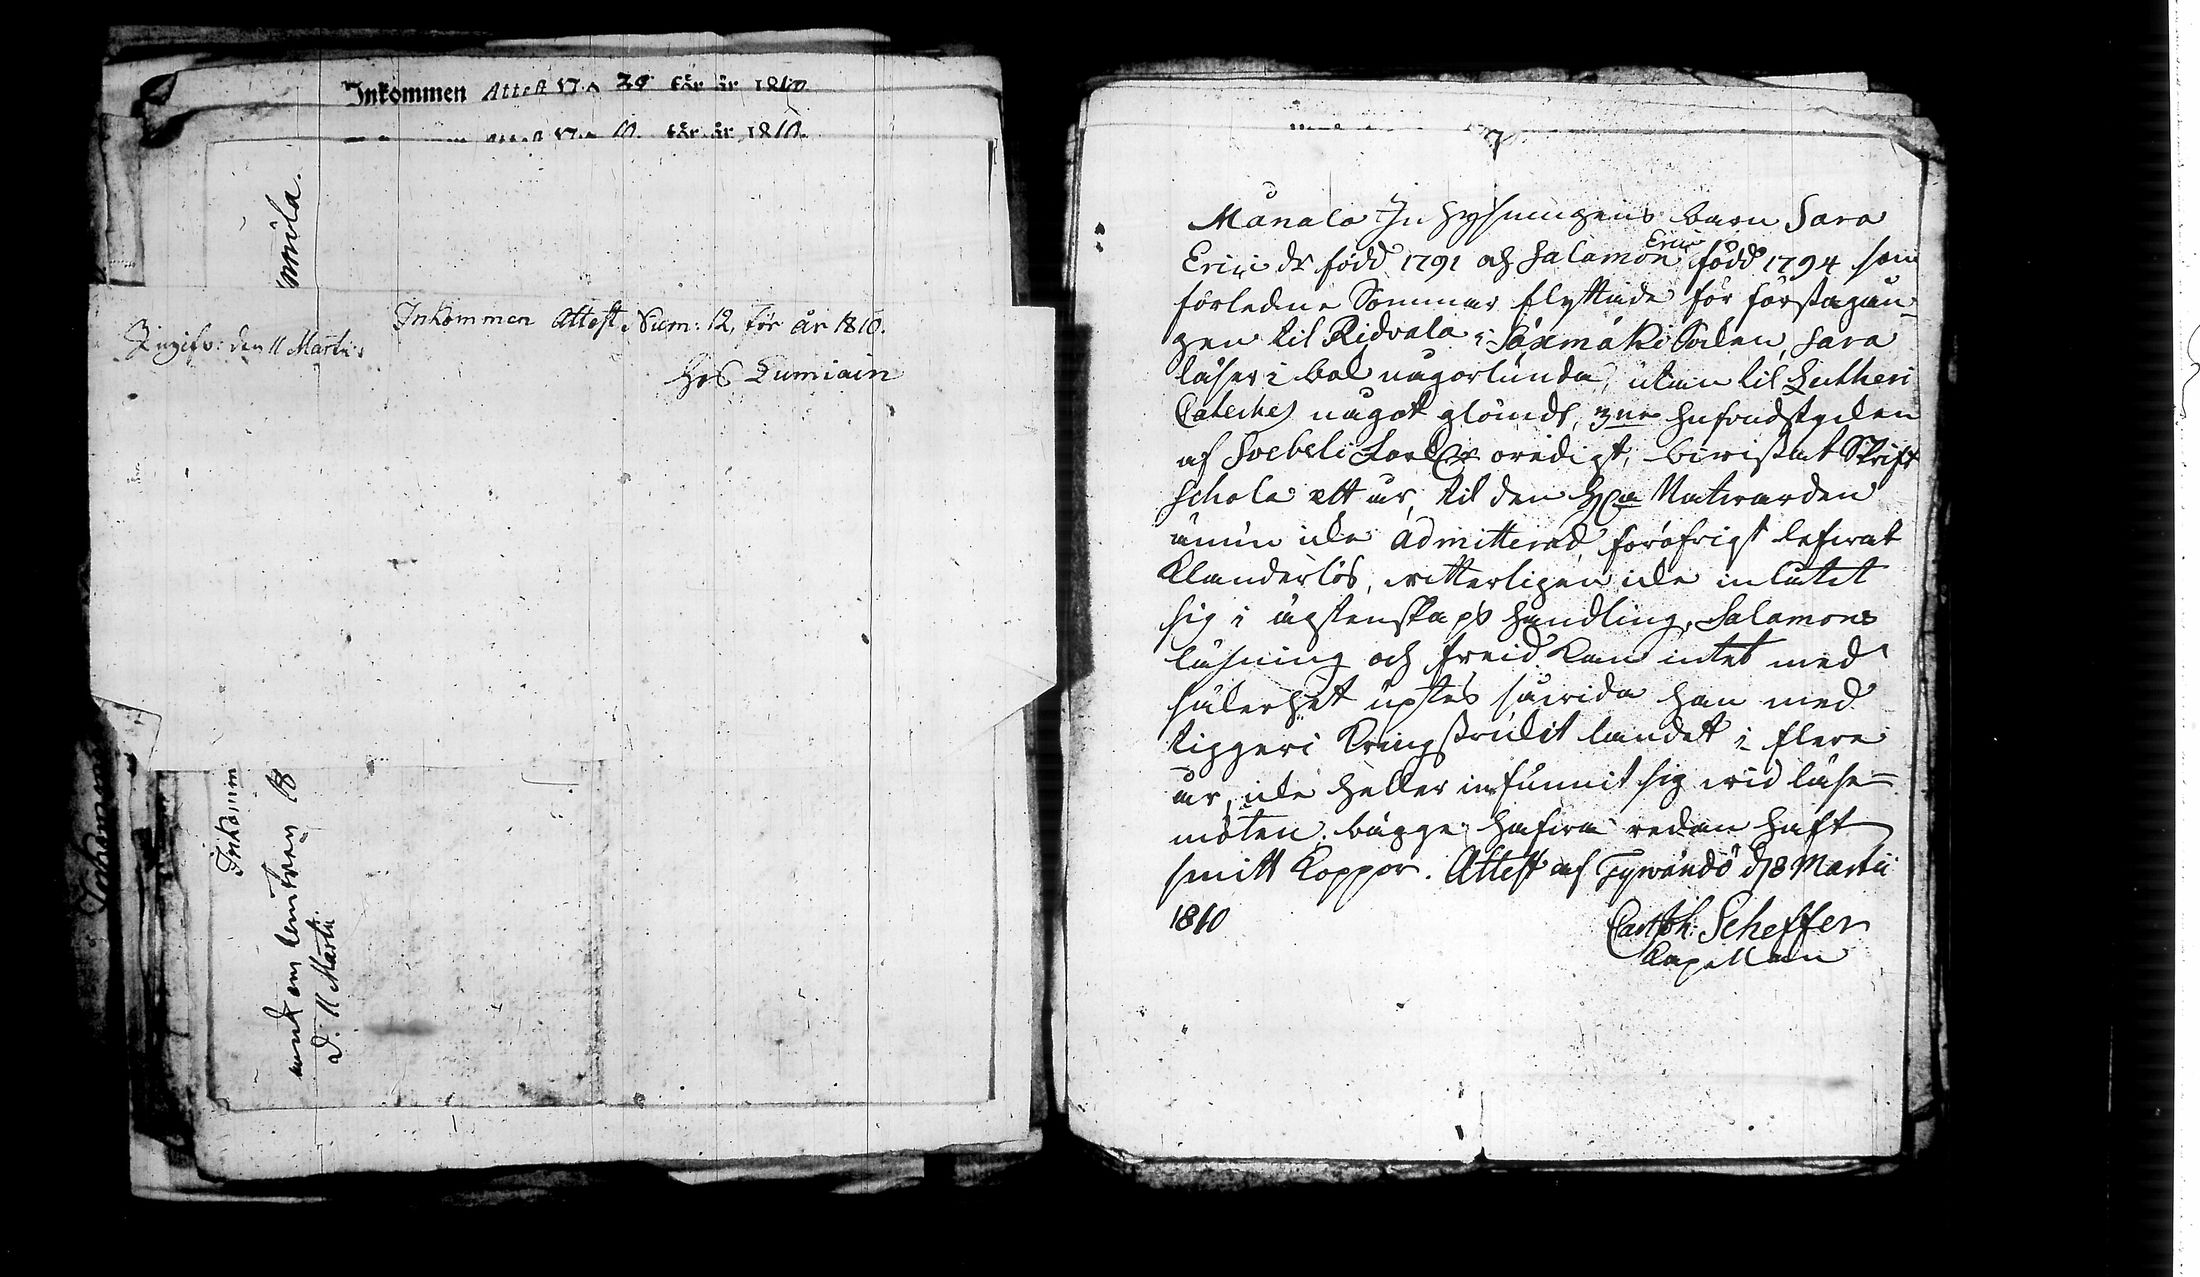 Inkommen Attest N:o 20 för år 1810
för år 1810.
Inkommen Attest Num: 12, för år 1810.
Ingifv: den 11 Martii
hos Lumiain
Inkomm
D. 11 Martii
Månala Inhysningens barn Sara
Erici dr född 1791 och Salamon Erici född 1794 som
förledne Sommar flyttade för förstagån-
gen til Ridvala i Säxmäki Soken, Sara
läser i bok någorlunda, utan til Lutheri
Cateches något glömdt, 3ne hufvudstycken
af Svebeli oredigt, bivistat Skrift
schola ett år, til den H. Nattvarden
ännu icke admitterad, föröfrigt lefvat
Klanderlös, vitterligen icke inlåtit
sig i ägtenskaps handling. Salamons
läsning och freid kan intet med
säkerhet uptes såvida han med
tiggeri kringstrukit landet i flere
år, icke heller infunnit sig vid läse-
möten. bägge hafva redan haft
smitt koppor. Attest af Tyrvändö d 8 Martii
1810
Scheffer
Kapellan